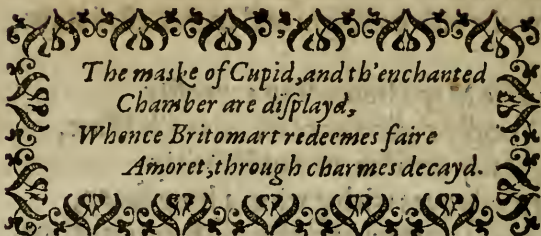 The maske of Cupid, and th'enchanted
Chamber are diſplayd,
Whence Britomart redeemes faire
Amoret, through charmes decayd.